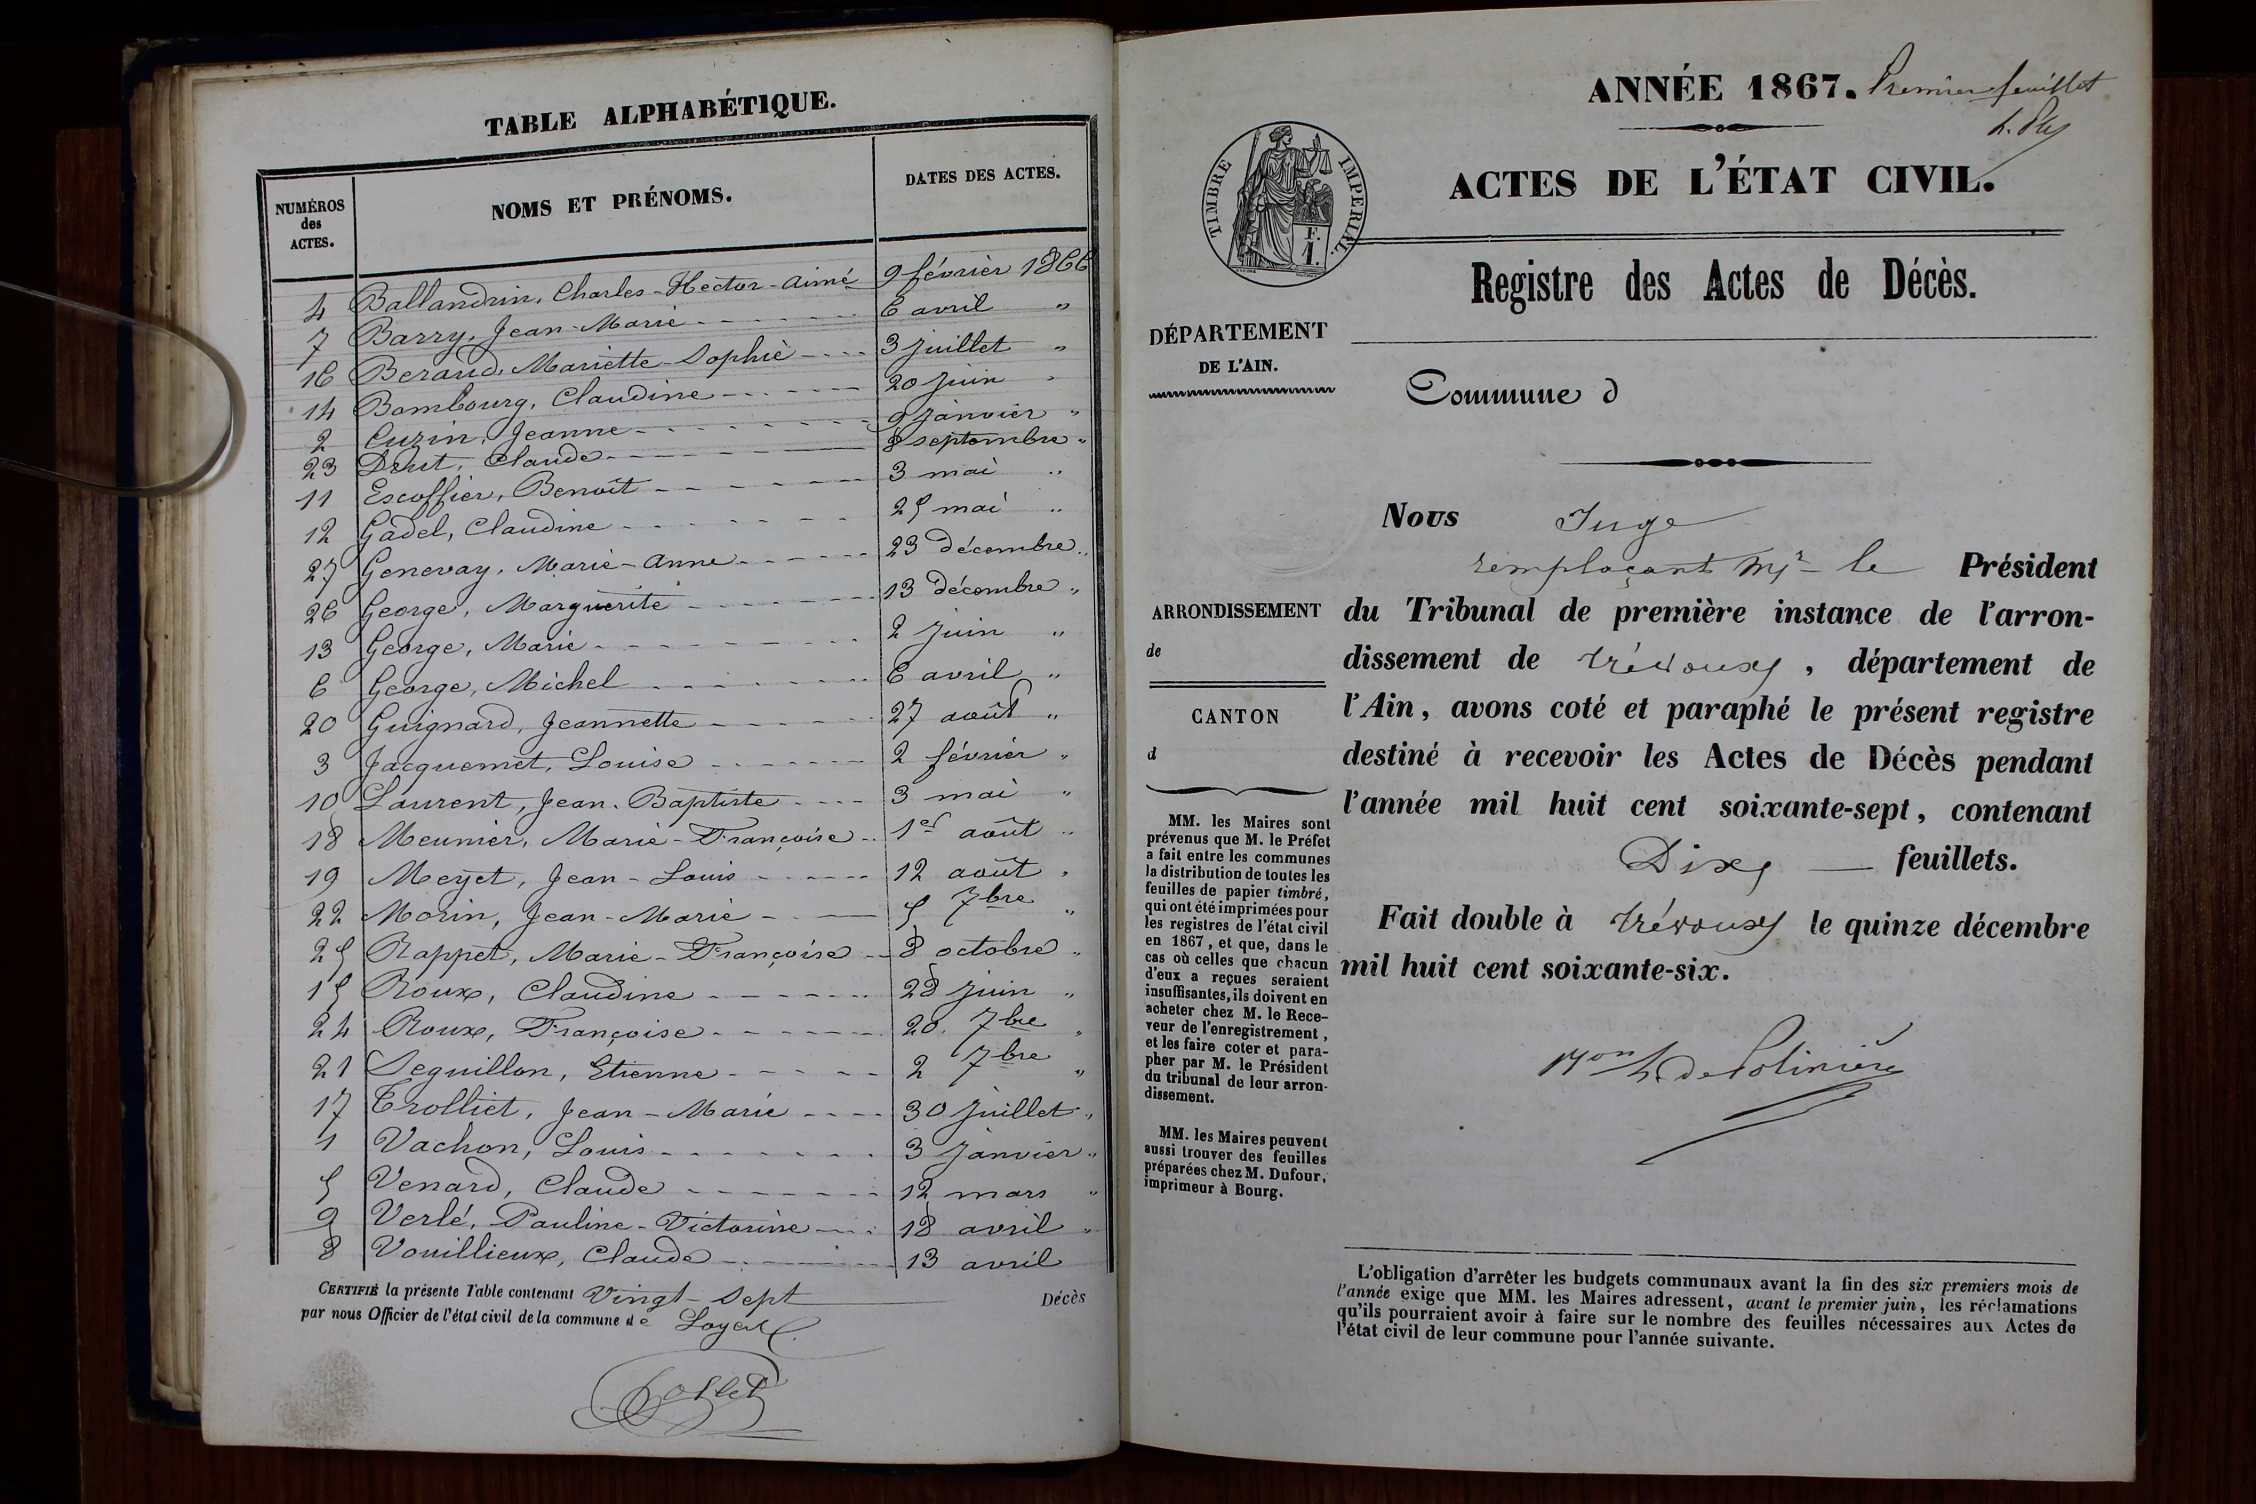 TABLE ALPHABÉTIQUE.
NUMÉROS des ACTES. NOMS ET PRÉNOMS. DATES DES ACTES.
4 Ballandrin, Charles-Hector-Aimé 9 février 1866
7 Barry, Jean-Marie 6 avril "
16 Beraud, Mariette-Sophie 3 juillet "
14 Bombourg, Claudine 20 juin "
2 Cuzin, Jeanne 9 janvier "
23 Drut, Claude 8 septembre "
11 Escoffier, Benoît 3 mai "
12 Gadel, Claudine 25 mai "
27 Genevay, Marie-Anne 23 décembre "
26 George, Marguerite 13 décembre "
13 George, Marie 2 juin "
6 George, Michel 6 avril "
20 Guignard, Jeannette 27 août "
3 Jacquemet, Louise 2 février "
10 Laurent, Jean-Baptiste 3 mai "
18 Meunier, Marie-Françoise 1er août "
19 Meyet, Jean-Louis 12 août "
22 Morin, Jean-Marie 5 7bre "
25 Rappet, Marie-Françoise 8 octobre "
15 Roux, Claudine 28 juin "
24 Roux, Françoise 20. 7bre "
21 Seguillon, Etienne 2 7bre "
17 Trolliet, Jean-Marie 30 juillet "
1 Vachon, Louis 3 janvier "
5 Venard, Claude 12 mars "
9 Verlé, Pauline-Victorine 18 avril "
8 Vouillieux, Claude 13 avril
CERTIFIÉ la présente Table contenant Vingt-Sept Décès
par nous Officier de l'état civil de la commune de Loyes.
ANNÉE 1867. Premier feuillet
TIMBRE IMPERIAL.
F.
1.
ACTES DE L'ÉTAT CIVIL.
Registre des Actes de Décès.
DÉPARTEMENT
DE L'AIN.
Commune d
Nous Juge
remplaçant Mr le Président
du Tribunal de première instance de l'arron-
dissement de Trévoux, département de
l'Ain, avons coté et paraphé le présent registre
destiné à recevoir les Actes de Décès pendant
l'année mil huit cent soixante-sept, contenant
Dix feuillets.
Fait double à Trévoux le quinze décembre
mil huit cent soixante-six.
de Polinière
ARRONDISSEMENT
de
CANTON
d
MM. les Maires sont
prévenus que M. le Préfet
a fait entre les communes
la distribution de toutes les
feuilles de papier timbré,
qui ont été imprimées pour
les registres de l'état civil
en 1867, et que, dans le
cas où celles que chacun
d'eux a reçues seraient
insuffisantes, ils doivent en
acheter chez M. le Rece-
veur de l'enregistrement,
et les faire coter et para-
pher par M. le Président
du tribunal de leur arron-
dissement.
MM. les Maires peuvent
aussi trouver des feuilles
préparées chez M. Dufour,
imprimeur à Bourg.
L'obligation d'arrêter les budgets communaux avant la fin des six premiers mois de
l'année exige que MM. les Maires adressent, avant le premier juin, les réclamations
qu'ils pourraient avoir à faire sur le nombre des feuilles nécessaires aux Actes de
l'état civil de leur commune pour l'année suivante.